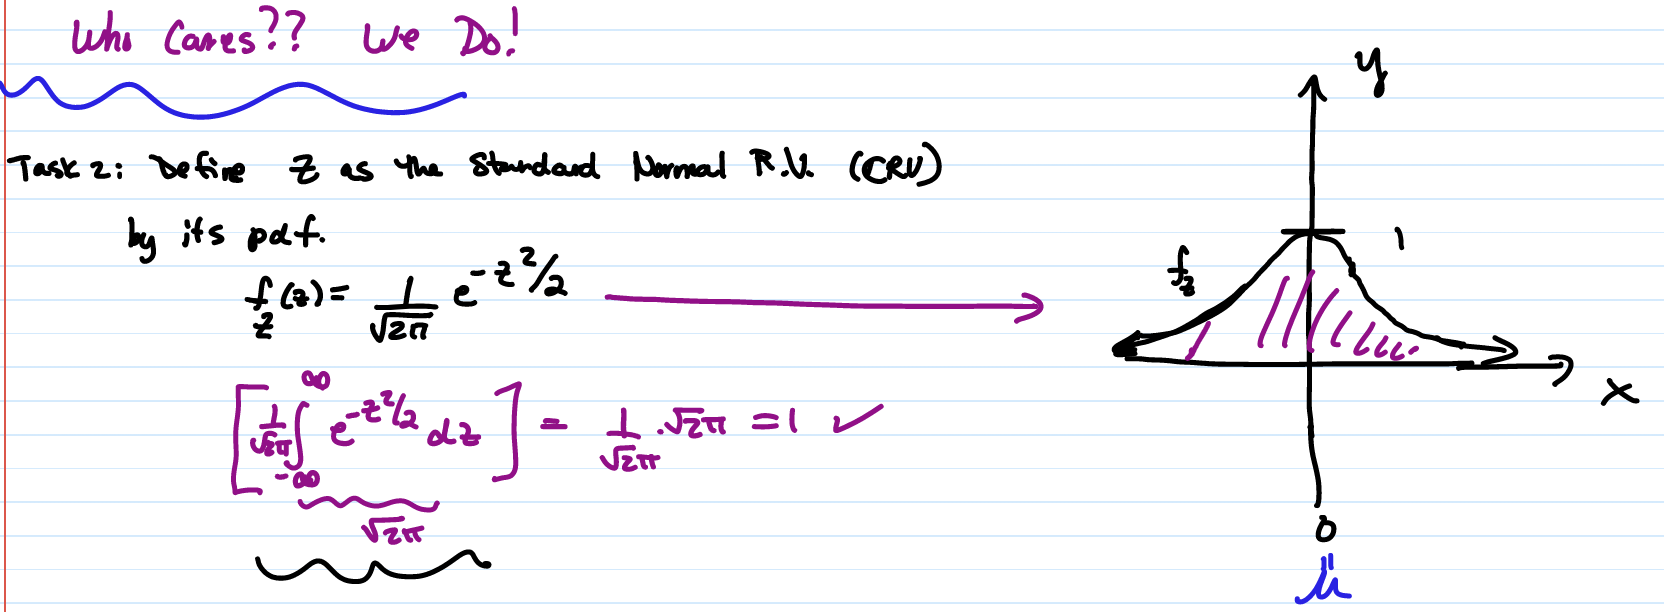 Who Cares?? We Do!
y
Task 2: Define Z as the Standard Normal R.V. (CRV)
by its pdf.
1
f_Z(z) = 1/√2π e^(-z²/2)
f_z
[1/√2π ∫_{-∞}^{∞} e^(-z²/2) dz] = 1/√2π · √2π = 1 ✓
x
√2π
0
μ